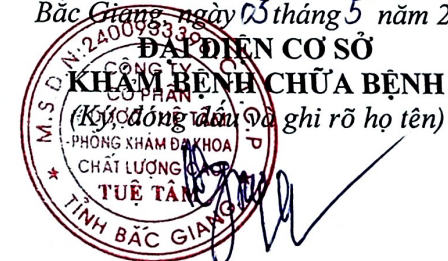 Bắc Giang, ngày 03 tháng 5 năm 2
ĐẠI DIỆN CƠ SỞ
KHÁM BỆNH CHỮA BỆNH
(Ký, đóng dấu và ghi rõ họ tên)
CÔNG TY
CỔ PHẦN
TUỆ TÂM
-PHÒNG KHÁM ĐA KHOA
CHẤT LƯỢNG CAO
TUỆ TÂM
M.S.D.N:
C.P
TỈNH BẮC GIANG